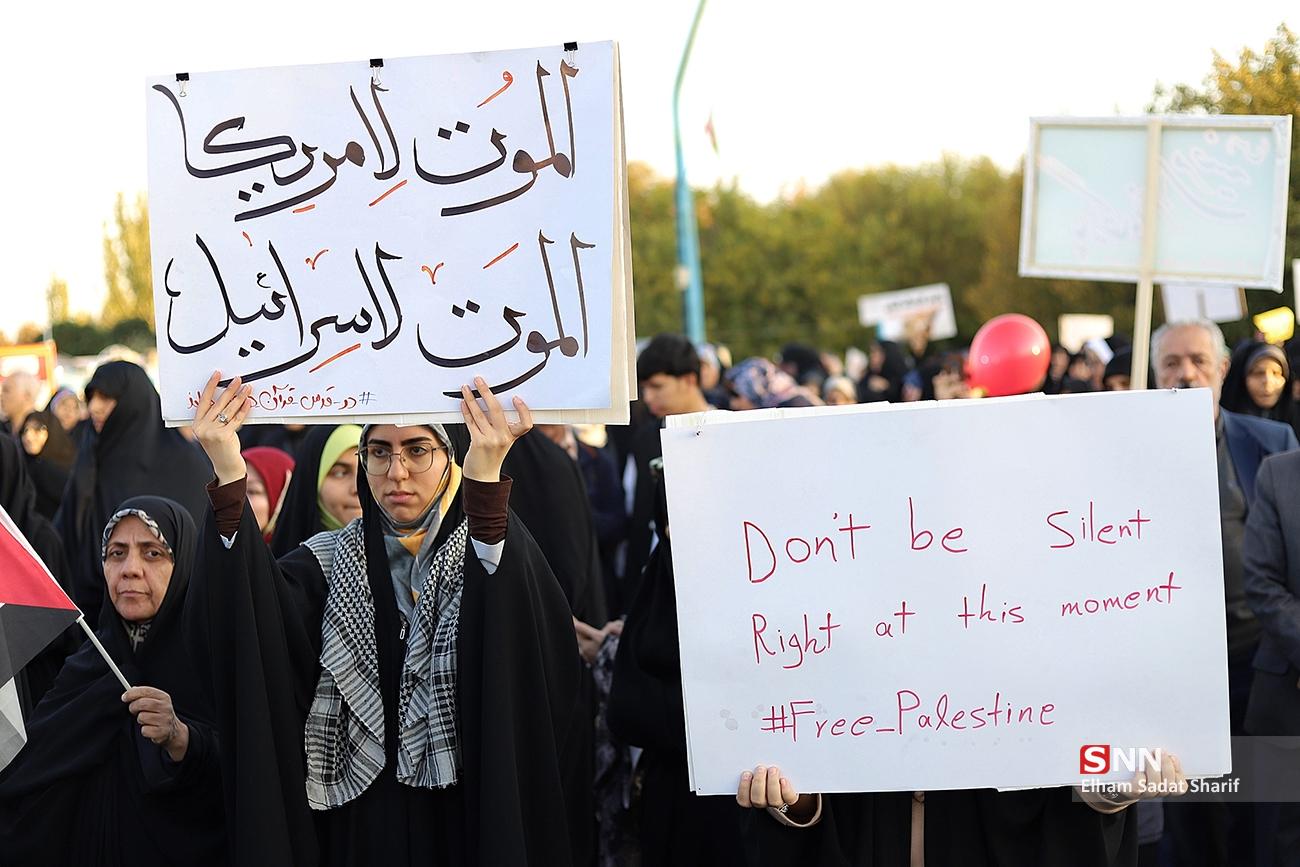 المُوت لِامرِيكا
الموَت لَاسرَائيل
Don't be Silent
Right at this moment
#Free_Palestine
SNN
Elham Sadat Sharif